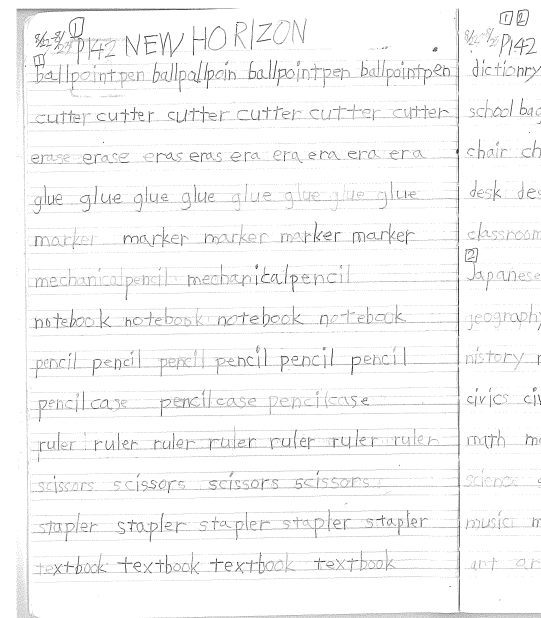 8/22-8/23 1 P142 NEW HORIZON
1
ballpointpen ballpallpoin ballpointpen ballpointpen
cutter cutter cutter cutter cutter cutter
erase erase eras eras era era era era era
glue glue glue glue glue glue glue glue
marker marker marker marker marker
mechanicalpencil mechanicalpencil
notebook notebook notebook notebook
pencil pencil pencil pencil pencil pencil
pencilcase pencilcase pencilcase
ruler ruler ruler ruler ruler ruler ruler
scissors scissors scissors scissors
stapler stapler stapler stapler stapler
textbook textbook textbook textbook
1 2
P142
dictionry
school bag
chair ch
desk des
classroom
2
Japanese
geography
history
civics civ
math m
science
music m
art ar